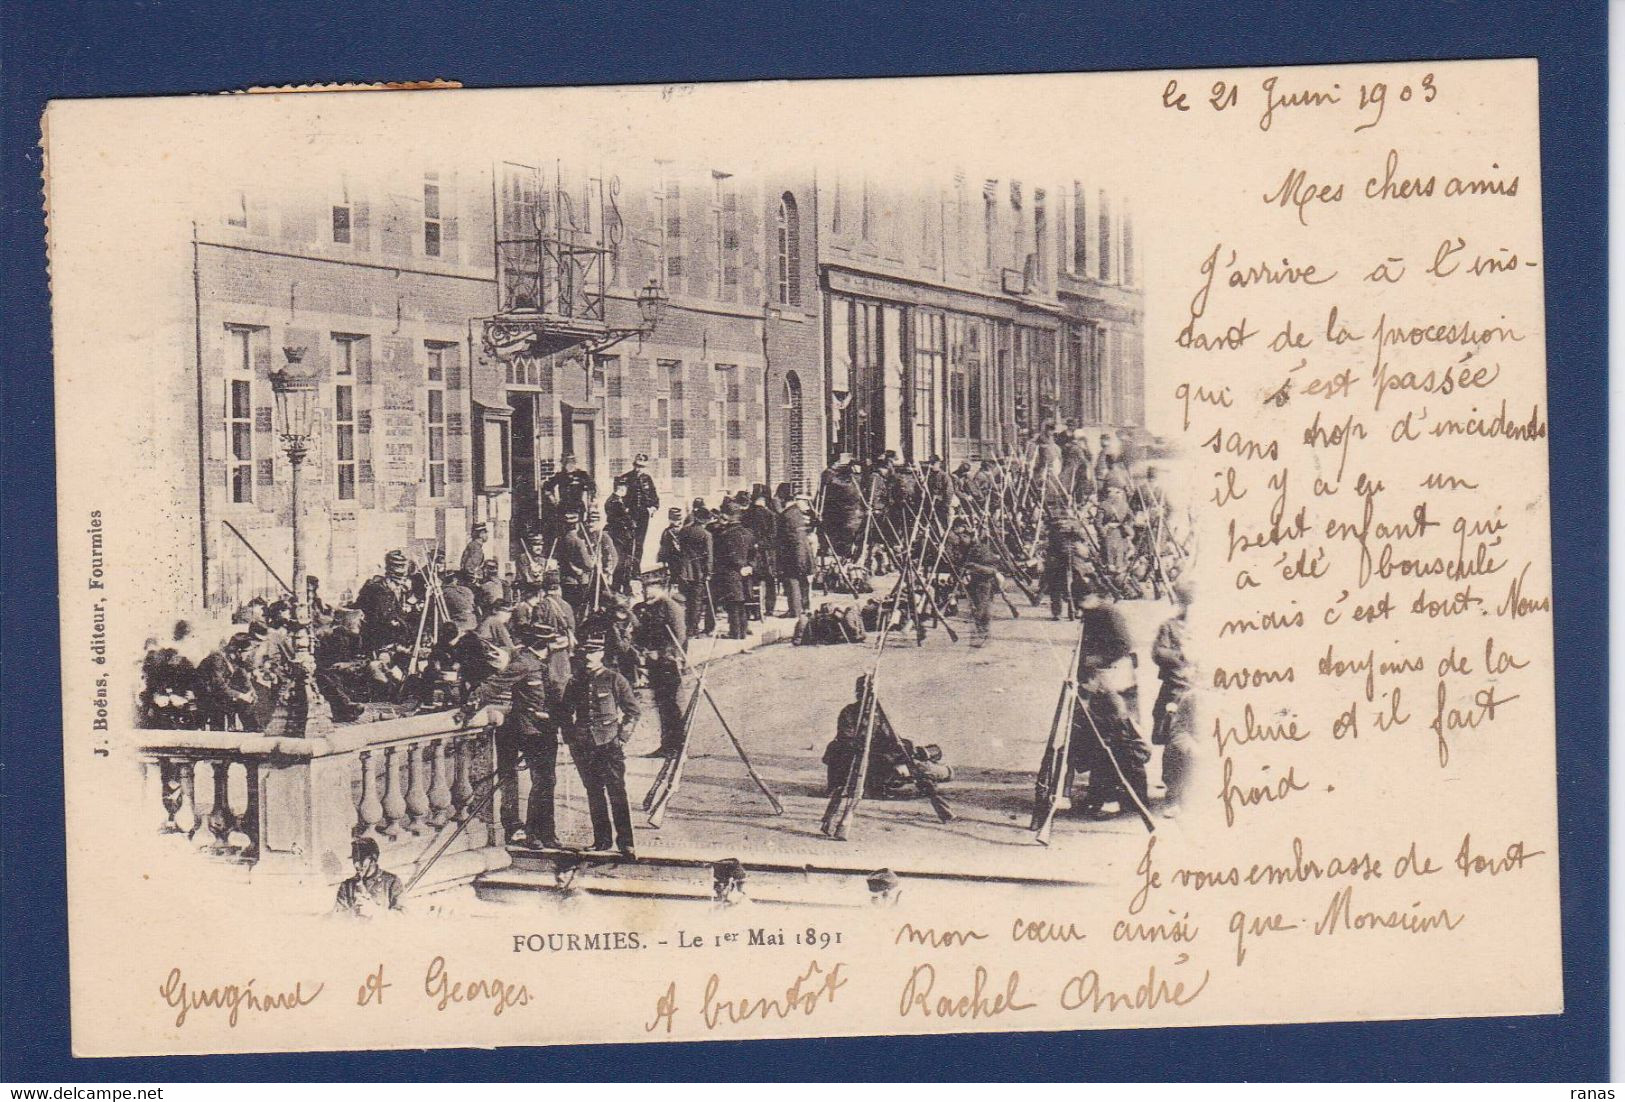 le 21 Juin 1903
Mes chers amis
J'arrive à l'ins-
tant de la procession
qui s'est passée
sans trop d'incidents
il y a eu un
petit enfant qui
a été bousculé
mais c'est tout. Nous
avons toujours de la
pluie et il fait
froid.
Je vous embrasse de tout
mon cœur ainsi que Monsieur
Guignard et Georges.
A bientôt Rachel André
FOURMIES. - Le 1er Mai 1891
J. Boëns, éditeur, Fourmies
ranas